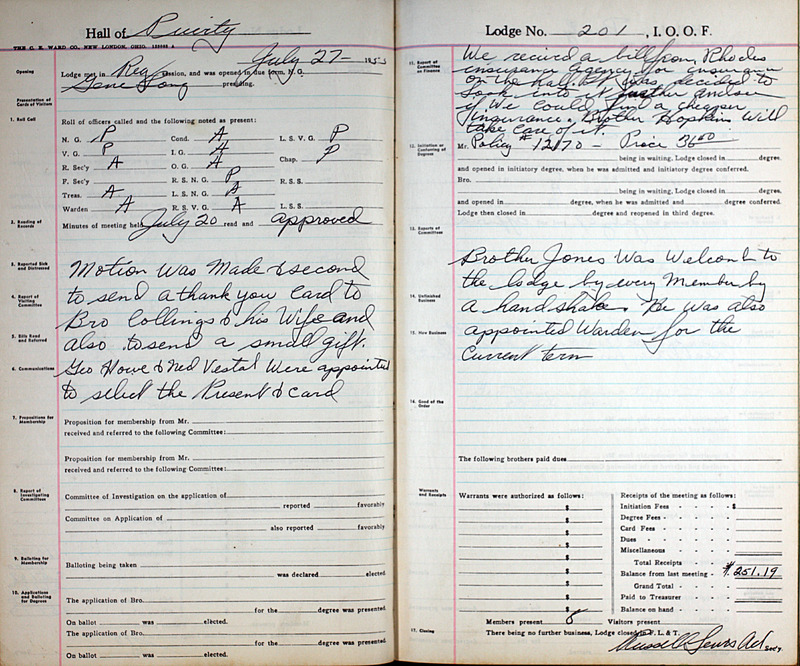 Hall of Purity
THE C. E. WARD CO., NEW LONDON, OHIO
July 27- 195
Opening
Lodge met in Reg session, and was opened in due form, N. G.
Gene Long presiding.
Presentation of Cards of Visitors
1. Roll Call
Roll of officers called and the following noted as present:
N. G. P Cond. A L. S. V. G. P
V. G. P I. G. A
R. Sec'y A O. G. A Chap. P
F. Sec'y R. S. N. G. P R. S. S.
Treas. A L. S. N. G. A
Warden A R. S. V. G. A L. S. S.
2. Reading of Records
Minutes of meeting held July 20 read and approved
3. Reported Sick and Distressed
4. Report of Visiting Committee
5. Bills Read and Referred
6. Communications
Motion Was Made & second
to send a thank you Card to
Bro Collings & his Wife and
also to send a small gift.
Geo Howe & Ned Vestal Were appointed
to select the Present & card
7. Propositions for Membership
Proposition for membership from Mr.
received and referred to the following Committee:
Proposition for membership from Mr.
received and referred to the following Committee:
8. Report of Investigating Committees
Committee of Investigation on the application of
reported favorably
Committee on Application of
also reported favorably
9. Balloting for Membership
Balloting being taken
was declared elected.
10. Applications and Balloting for Degrees
The application of Bro.
for the degree was presented.
On ballot was elected.
The application of Bro.
for the degree was presented.
On ballot was elected.
Lodge No. 201, I. O. O. F.
11. Report of Committee on Finance
We recived a bill from Rhodes
insurance agency for insurance
on the hall. It was decided to
look into it further and see
if We could find a cheaper
insurance. Brother Hopkins Will
take care of it.
Policy # 12170 - Price 36.00
12. Initiation or Conferring of Degrees
Mr.
being in waiting, Lodge closed in degree,
and opened in initiatory degree, when he was admitted and initiatory degree conferred.
Bro.
being in waiting, Lodge closed in degree,
and opened in degree, when he was admitted and degree conferred.
Lodge then closed in degree and reopened in third degree.
13. Reports of Committees
14. Unfinished Business
15. New Business
Brother Jones Was Welcom to
the lodge by every Member by
a hand shake. He was also
appointed Warden for the
Current term
16. Good of the Order
The following brothers paid dues
Warrants and Receipts
Warrants were authorized as follows:
$
$
$
$
$
$
$
$
$
Receipts of the meeting as follows:
Initiation Fees - - - - $
Degree Fees - - - -
Card Fees - - - -
Dues - - - - -
Miscellaneous - - - -
Total Receipts -
Balance from last meeting - $251.19
Grand Total -
Paid to Treasurer - -
Balance on hand - - -
Members present 8 Visitors present
17. Closing
There being no further business, Lodge closed in F. L. & T.
Russell Act Secy.